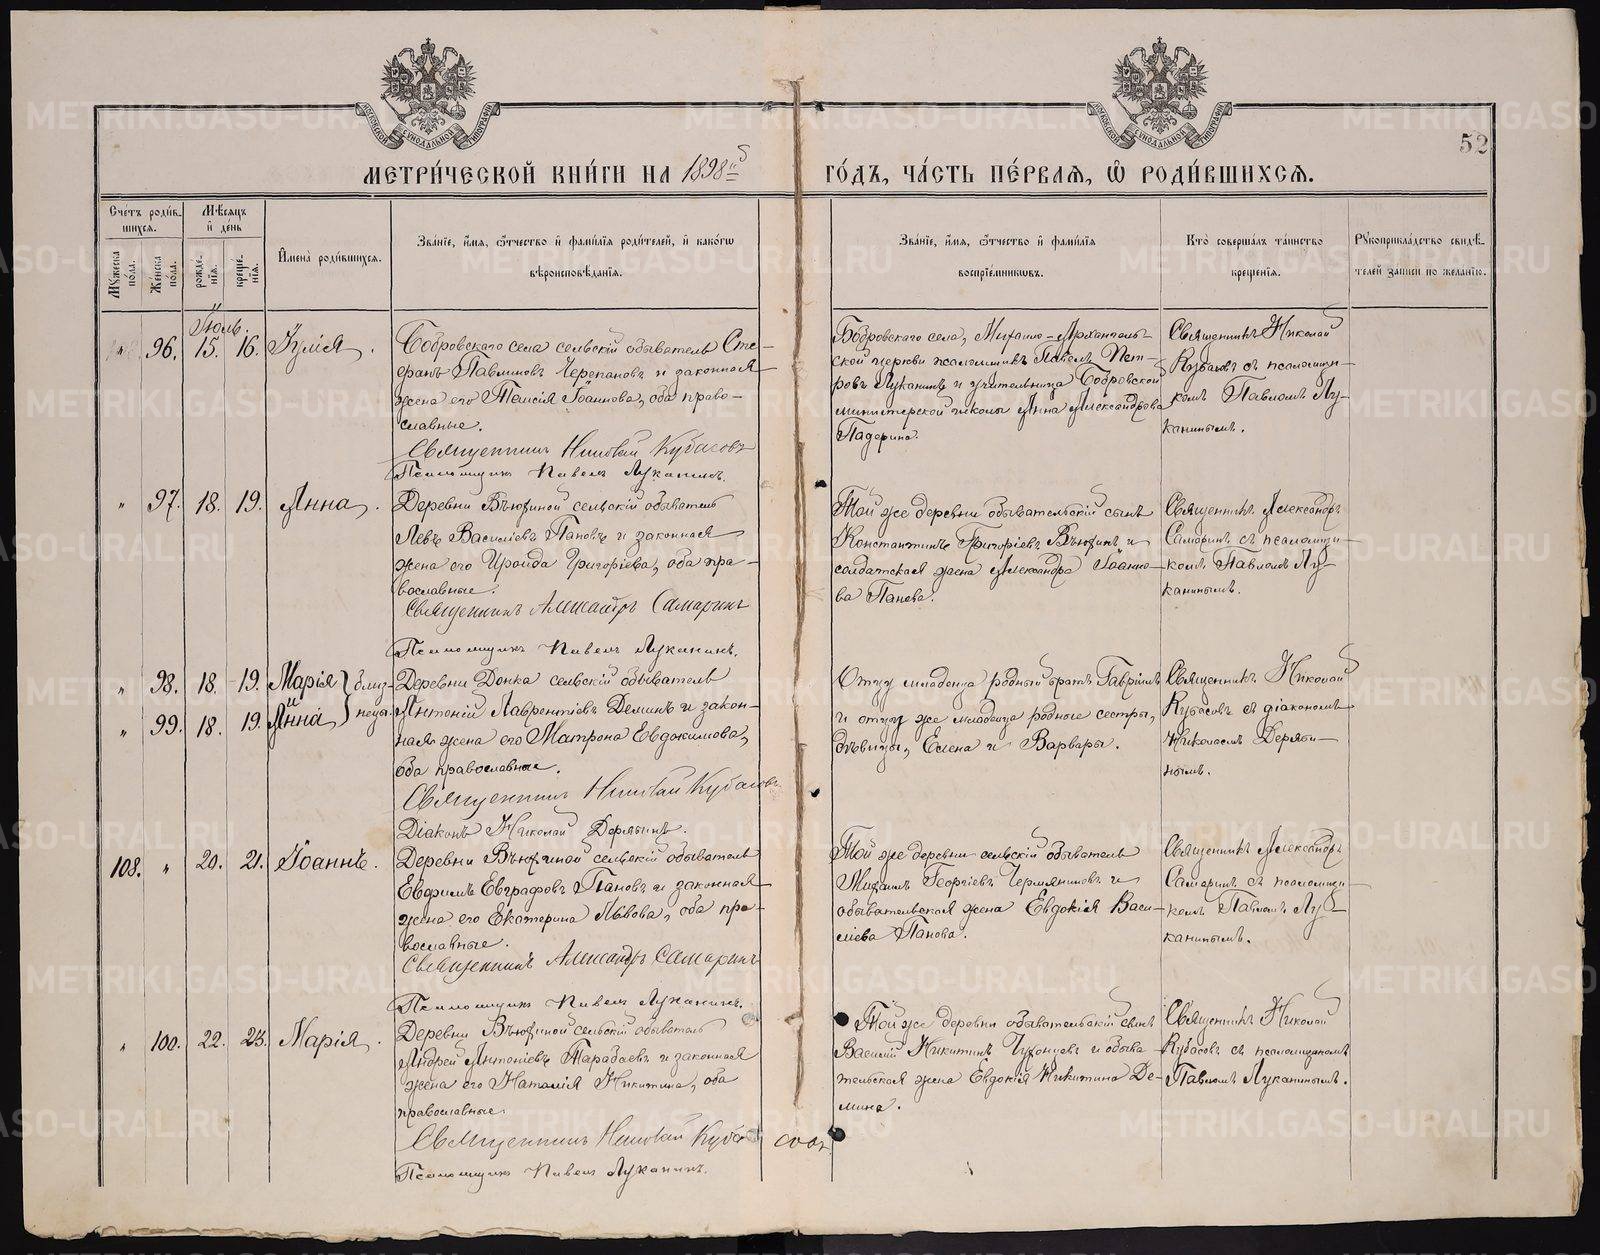 МЕТРИ́ЧЕСКОЙ КНИ́ГИ НА 1898й
ГО́ДЪ, ЧА́СТЬ ПЕ́РВАЯ, Ѽ РОДИ́ВШИХСЯ.
52
Сче́тъ роди́в-
шихся.
Мѣ́сяцъ
и҆ де́нь
Мꙋ́жеска
пола.
Же́нска
пола.
рожде́-
нїя.
креще́-
нїя.
И҆мена̀ роди́вшихся.
Зва́нїе, и҆́мя, ѻ҆́тчество и҆ фами́лїя роди́телей, и҆ како́гѡ
вѣроисповѣ́данїя.
Зва́нїе, и҆́мя, ѻ҆́тчество и҆ фами́лїя
воспрїе́мникѡвъ.
Кто̀ соверша́лъ та́инство
креще́нїя.
Рꙋкоприкла́дство свидѣ́-
телей за́писи по жела́нїю.
Іюль.
" 96. 15. 16. Іулія.
Бобровскаго села сельскій обыватель Сте-
фанъ Павлиновъ Черепановъ и законная
жена его Таисія Іоаннова, оба право-
славные.
Священникъ Николай Кубасовъ
Псаломщикъ Павелъ Луканинъ.
Бобровскаго села, Михаило-Архангель-
ской церкви псаломщикъ Павелъ Пет-
ровъ Луканинъ и учительница Бобровской
министерской школы Анна Александрова
Падерина.
Священникъ Николай
Кубасовъ съ псаломщи-
комъ Павломъ Лу-
канинымъ.
" 97. 18. 19. Анна.
Деревни Вьюхиной сельскій обыватель
Левъ Василіевъ Пановъ и законная
жена его Ираида Григоріева, оба пра-
вославные.
Священникъ Александръ Самаринъ
Псаломщикъ Павелъ Луканинъ.
Той же деревни обывательскій сынъ
Константинъ Григоріевъ Вьюхинъ и
солдатская жена Александра Іоанно-
ва Панова.
Священникъ Александръ
Самаринъ съ псаломщи-
комъ Павломъ Лу-
канинымъ.
" 98. 18. 19. Марія } близ-
" 99. 18. 19. Анна } нецы.
Деревни Донка сельскій обыватель
Антоній Лаврентіевъ Деминъ и закон-
ная жена его Матрона Евдокимова,
оба православные.
Священникъ Николай Кубасовъ
Діаконъ Николай Дерябинъ.
Отцу младенца родный братъ Гавріилъ
и отцу же младенца родные сестры,
дѣвицы, Елена и Варвары.
Священникъ Николай
Кубасовъ съ діакономъ
Николаемъ Деряби-
нымъ.
108. " 20. 21. Іоаннъ.
Деревни Вьюхиной сельскій обыватель
Евфимъ Евграфовъ Пановъ и законная
жена его Екатерина Львова, оба пра-
вославные.
Священникъ Александръ Самаринъ
Псаломщикъ Павелъ Луканинъ.
Той же деревни сельскій обыватель
Михаилъ Георгіевъ Чермяниновъ и
обывательская жена Евдокія Васи-
ліева Панова.
Священникъ Александръ
Самаринъ съ псаломщи-
комъ Павломъ Лу-
канинымъ.
" 100. 22. 23. Марія.
Деревни Вьюхиной сельскій обыватель
Андрей Антоніевъ Тарабаевъ и законная
жена его Наталія Никитина, оба
православные.
Священникъ Николай Кубасовъ
Псаломщикъ Павелъ Луканинъ.
Той же деревни обывательскій сынъ
Василій Никитинъ и обыва-
тельская жена Евдокія Никитина Де-
мина.
Священникъ Николай
Кубасовъ съ псаломщикомъ
Павломъ Луканинымъ.